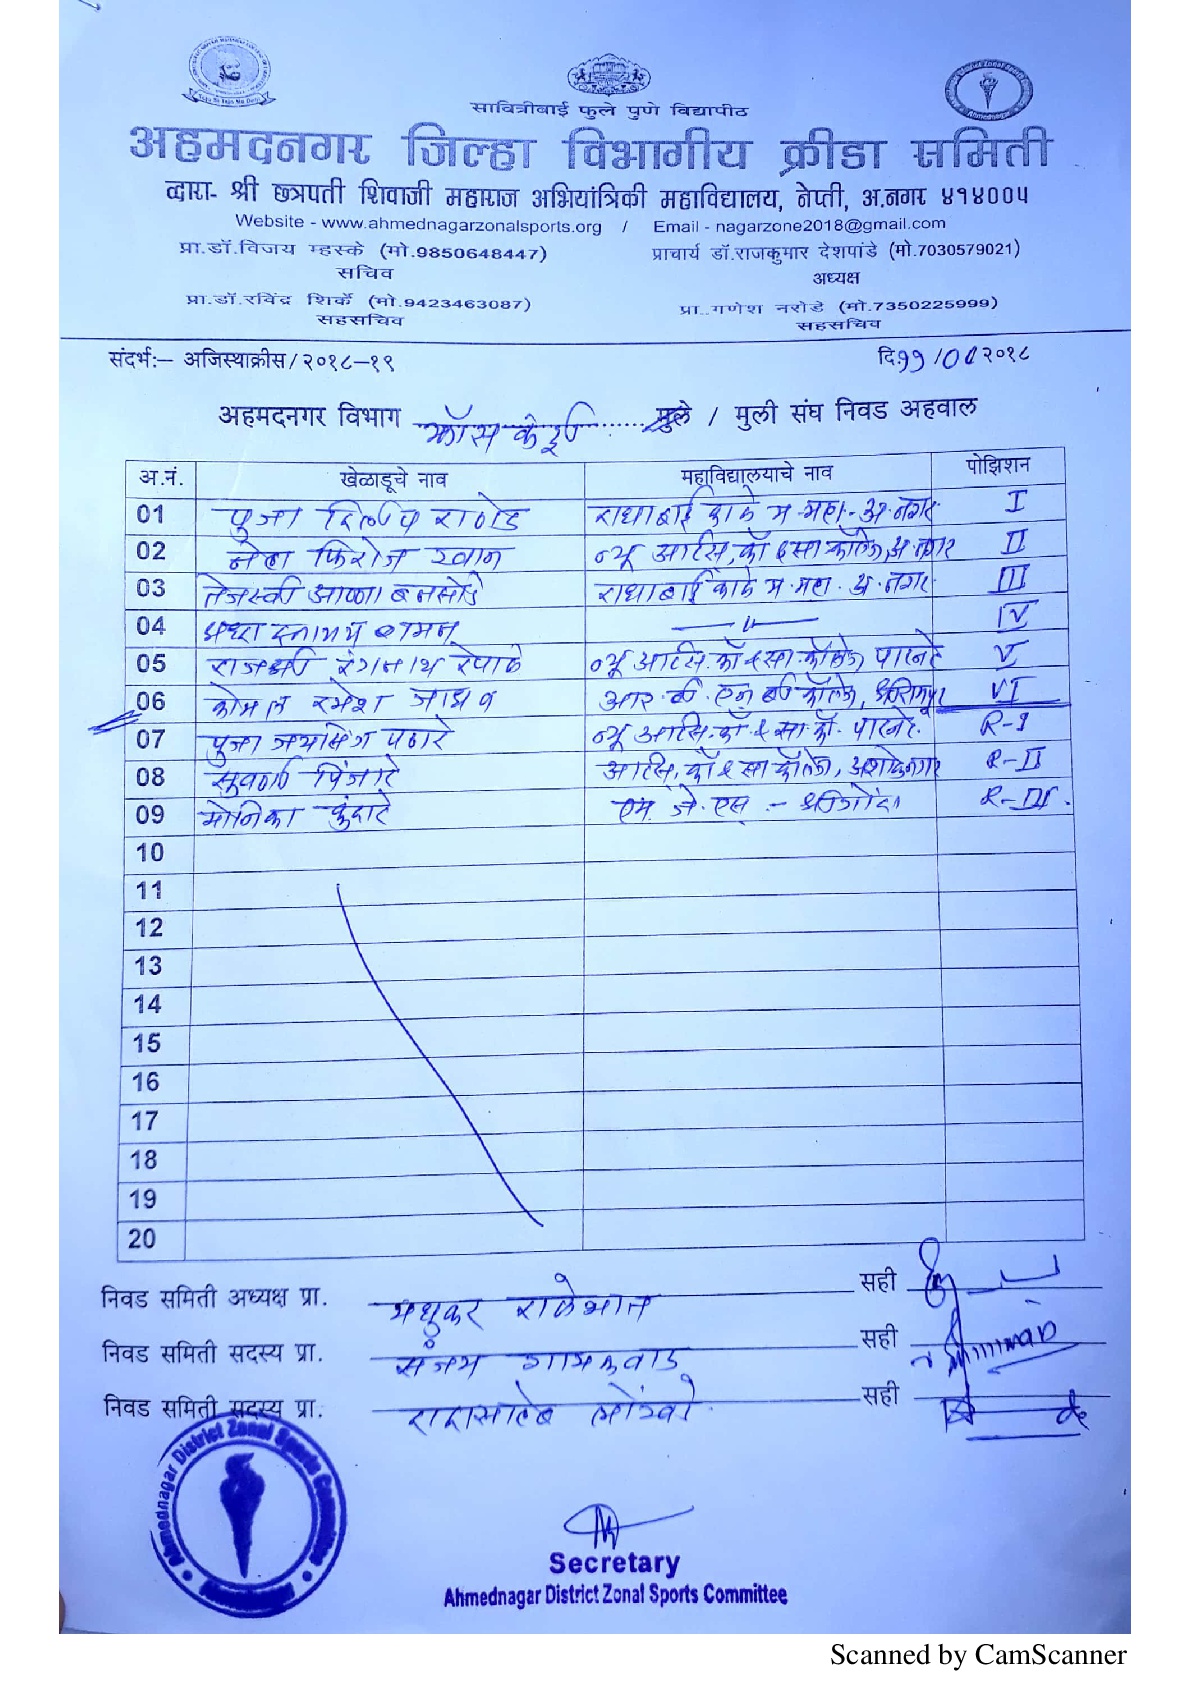 सावित्रीबाई फुले पुणे विद्यापीठ
अहमदनगर जिल्हा विभागीय क्रीडा समिती
द्वारा- श्री छत्रपती शिवाजी महाराज अभियांत्रिकी महाविद्यालय, नेप्ती, अ.नगर ४१४००५
Website - www.ahmednagarzonalsports.org / Email - nagarzone2018@gmail.com
प्रा.डॉ.विजय म्हस्के (मो.9850648447) प्राचार्य डॉ.राजकुमार देशपांडे (मो.7030579021)
सचिव अध्यक्ष
प्रा.डॉ.रविंद्र शिर्के (मो.9423463087) प्रा..गणेश नरोडे (मो.7350225999)
सहसचिव सहसचिव
संदर्भ:– अजिस्थाक्रीस/२०१८–१९ दि. २०१८
अहमदनगर विभाग क्रॉस कंट्री ...... मुले / मुली संघ निवड अहवाल
अ.नं. खेळाडूचे नाव महाविद्यालयाचे नाव पोझिशन
01 पुजा दिलीप राठोड राधाबाई काळे म.महा. अ.नगर I
02 नेहा फिरोज खान न्यू आर्टस्, कॉ & सा कॉलेज, अ.नगर II
03 तेजस्वी आण्णा बनसोडे राधाबाई काळे म.महा. अ.नगर III
04 –– 〃 –– IV
05 राजश्री रंगनाथ रेपाळे न्यू आर्टस्.कॉ & सा.कॉलेज, पारनेर V
06 कोमल रमेश जाधव आर.बी.एन.बी. कॉलेज, श्रीरामपूर VI
07 पुजा जयसिंग पठारे न्यू आर्टस्.कॉ. & सा.कॉ. पारनेर. R-I
08 सुवर्णा पिंजारे आर्टस्, कॉ & सा कॉलेज, R-II
09 मोनिका कुंदारे एम. जे. एस. - श्रीगोंदा R-III.
10
11
12
13
14
15
16
17
18
19
20
निवड समिती अध्यक्ष प्रा. मधुकर राळेभात सही
निवड समिती सदस्य प्रा. संजय गायकवाड सही
निवड समिती सदस्य प्रा. सही
Ahmednagar District Zonal Sports Committee
Secretary
Ahmednagar District Zonal Sports Committee
Scanned by CamScanner